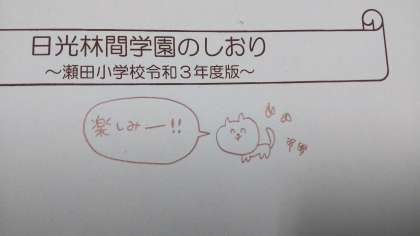 日光林間学園のしおり
～瀬田小学校令和3年度版～
楽しみー!!